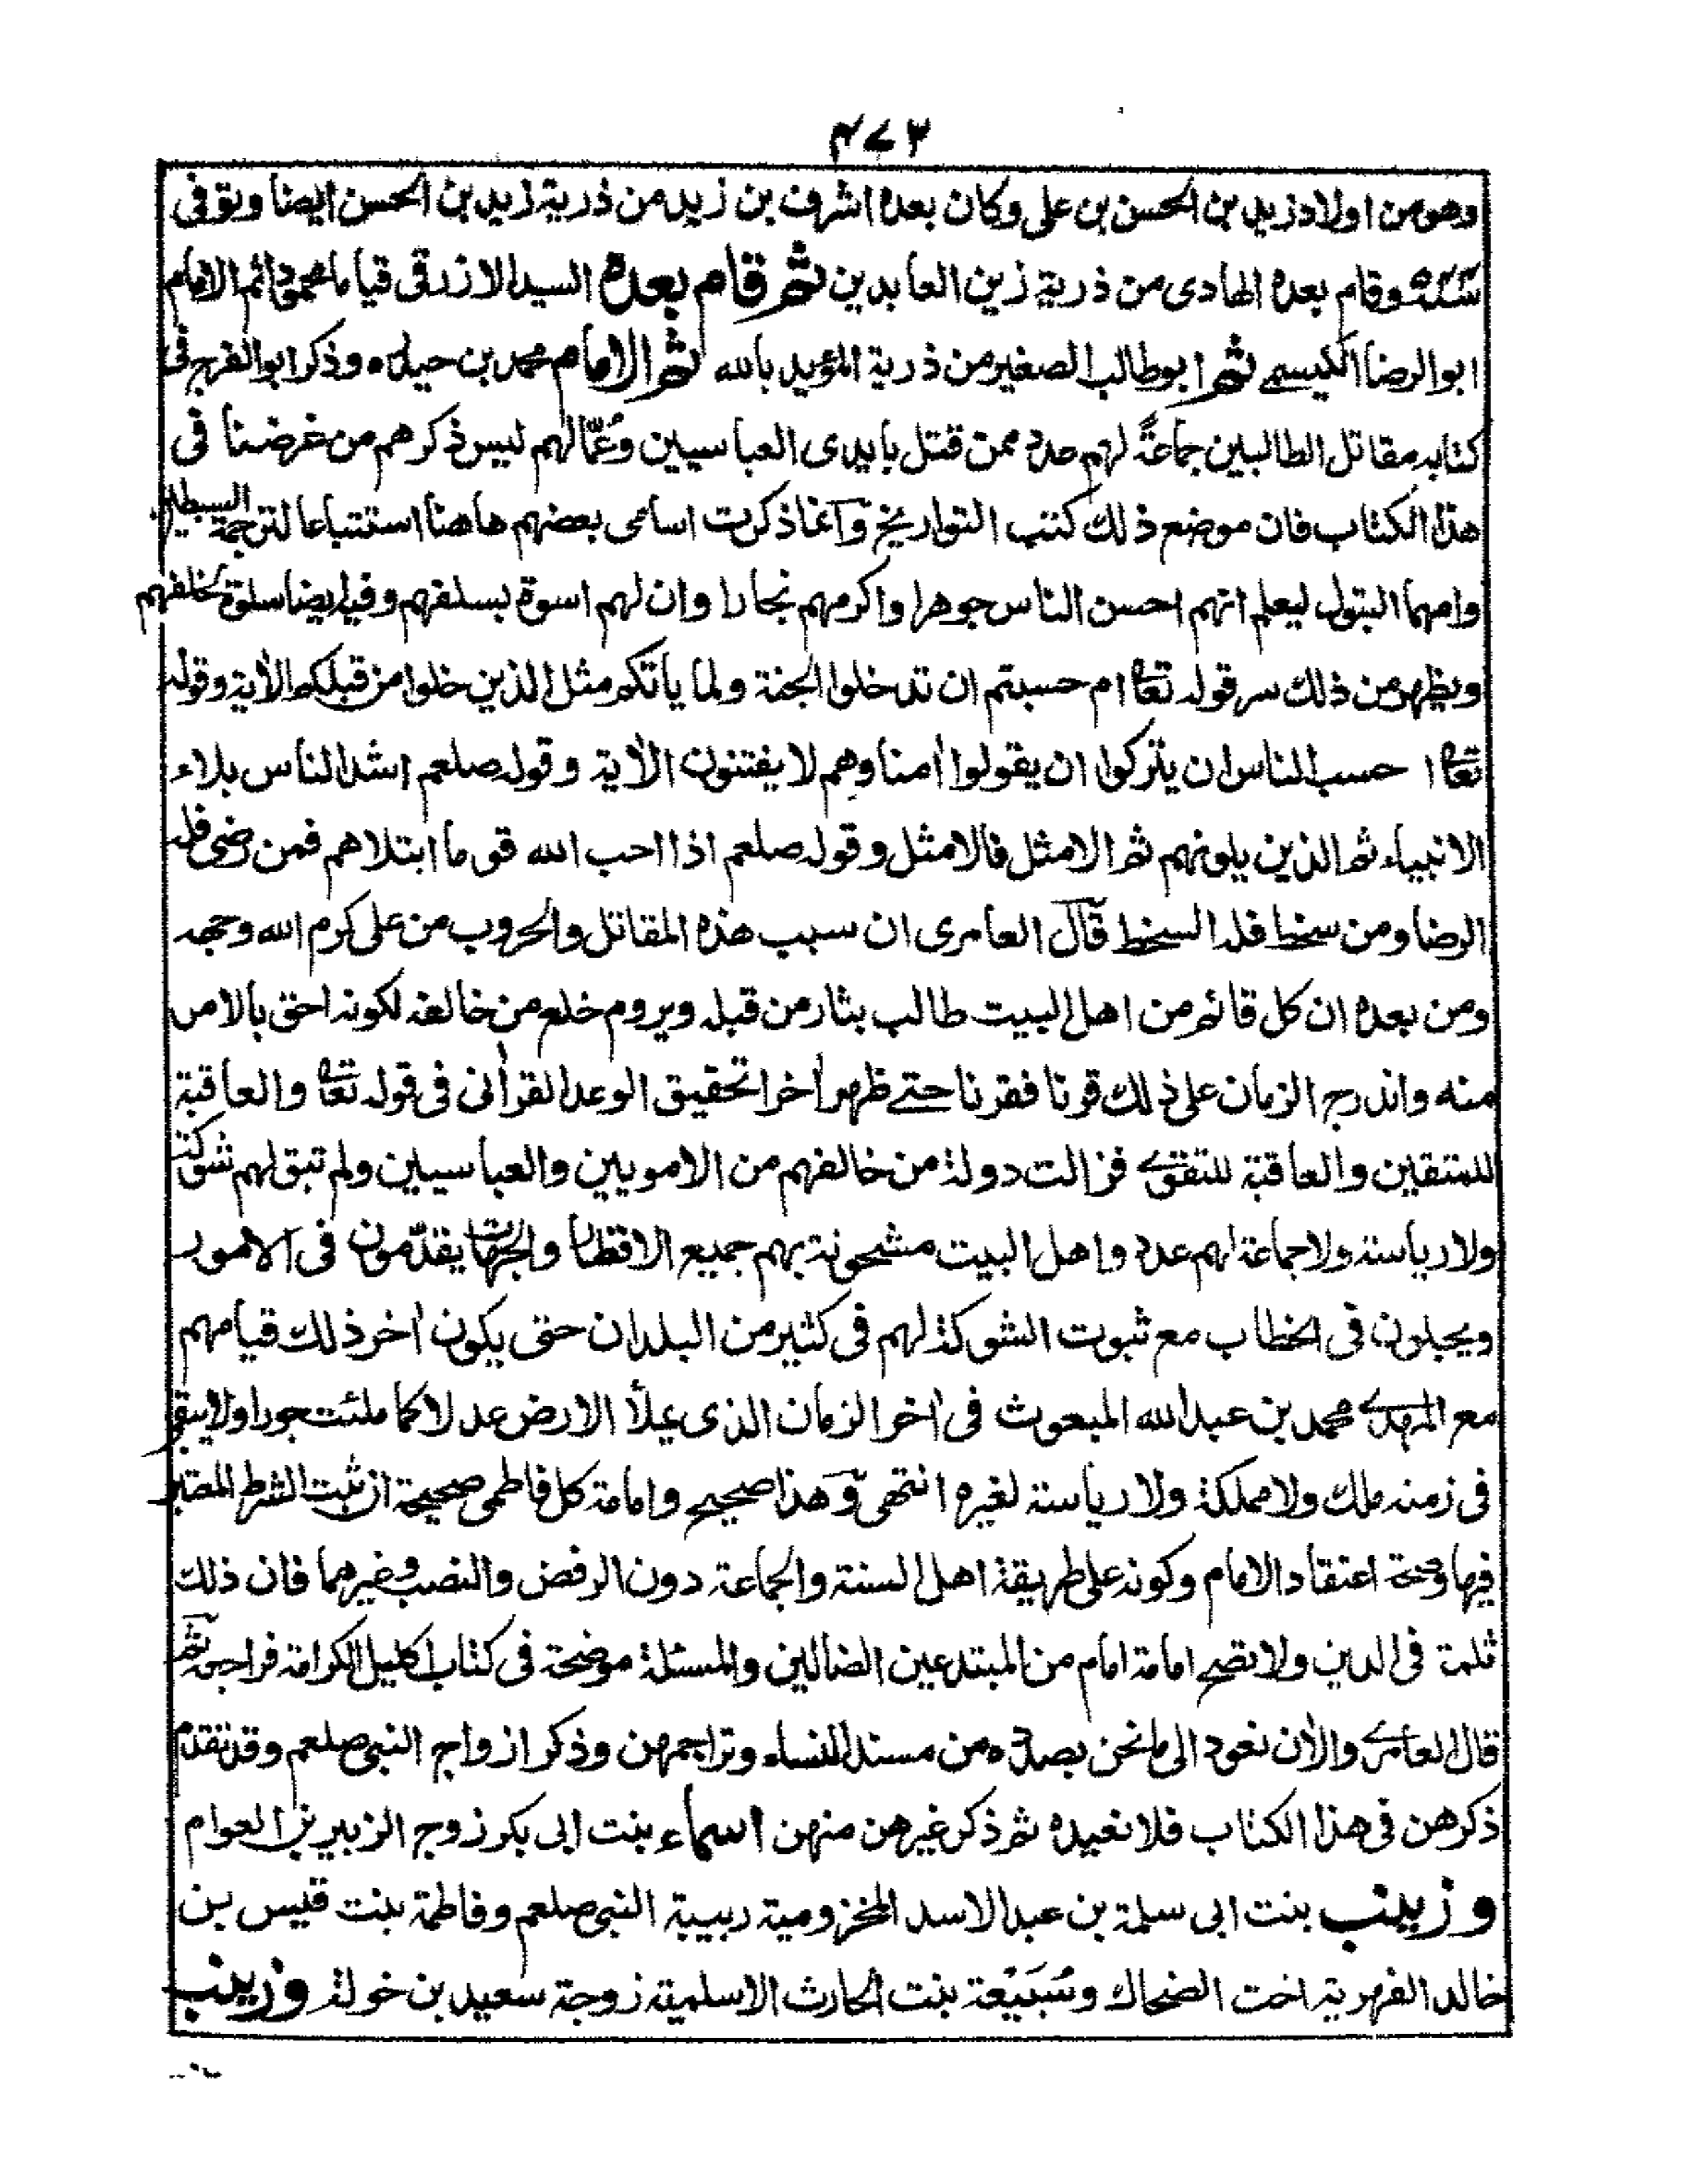 ٤٧٣
وهو من اولاد زيد بن الحسن بن على وكان بعده اشرف بن زيد من ذرية زيد بن الحسن ايضا وتوفى
وقام بعده الهادى من ذرية زين العابدين ثم قام بعده السيد الازرقى قياما محمودا ثم الامام
ابو الرضا الكيسمى ثم ابو طالب الصغير من ذرية المؤيد بالله ثم الامام محمد بن حيدره وذكر ابو الفرج فى
كتابه مقاتل الطالبين جماعةً لهم عدد ممن قتل بايدى العباسيين وعُمّالهم ليس ذكرهم من غرضنا فى
هذا الكتاب فان موضع ذلك كتب التواريخ وانما ذكرت اسامى بعضهم هاهنا استتباعا لترجمة السبطين
وامهما البتول ليعلم انهم احسن الناس جوهرا واكرمهم نجارا وان لهم اسوة بسلفهم وفيه ايضا سلوة لخلفهم
ويظهر من ذلك سر قوله تعا ام حسبتم ان تدخلوا الجنة ولما يأتكم مثل الذين خلوا من قبلكم الأية وقوله
تعا احسب الناس ان يتركوا ان يقولوا أمنا وهم لا يفتنون الأية وقوله صلعم اشد الناس بلاء
الانبياء ثم الذين يلونهم ثم الامثل فالامثل وقوله صلعم اذا احب الله قوما ابتلاهم فمن رضى فله
الرضا ومن سخط فله السخط قال العامرى ان سبب هذه المقاتل والحروب من على كرم الله وجهه
ومن بعده ان كل قائم من اهل البيت طالب بثار من قبله ويروم خلع من خالفه لكونه احق بالامر
منه واندرج الزمان على ذلك قرنا فقرنا حتى ظهر أخرا تحقيق الوعد القرأنى فى قوله تعا والعاقبة
للمتقين والعاقبة للتقوى فزالت دولة من خالفهم من الامويين والعباسيين ولم تبق لهم شوكة
ولا رياسة ولا جماعة لهم عدد واهل البيت مشحونة بهم جميع الاقطار والجهات يقدّمون فى الامور
ويجلون فى الخطاب مع ثبوت الشوكة لهم فى كثير من البلدان حتى يكون أخر ذلك قيامهم
مع المهدى محمد بن عبد الله المبعوث فى أخر الزمان الذى يملأ الارض عدلا كما ملئت جورا ولا يبقى
فى زمنه ملك ولا مملكة ولا رياسة لغيره انتهى وهذا صحيح وامامة كل فاطمى صحيحة ان ثبت الشرط المعتبر
فيها وصحة اعتقاد الامام وكونه على طريقة اهل السنة والجماعة دون الرفض والنصب وغيرهما فان ذلك
ثلمة فى الدين ولا تصح امامة امام من المبتدعين الضالين والمسئلة موضحة فى كتاب اكليل الكرامة فراجعه ثم
قال العامرى والأن نعود الى ما نحن بصدده من مسند النساء وتراجمهن وذكر ازواج النبى صلعم وقد تقدم
ذكرهن فى هذا الكتاب فلا نعيده ثم ذكر غيرهن منهن اسماء بنت ابى بكر زوج الزبير بن العوام
وزينب بنت ابى سلمة بن عبد الاسد المخزومية ربيبة النبى صلعم وفاطمة بنت قيس بن
خالد الفهرية اخت الضحاك وسُبَيْعة بنت الحارث الاسلمية زوجة سعيد بن خولة وزينب